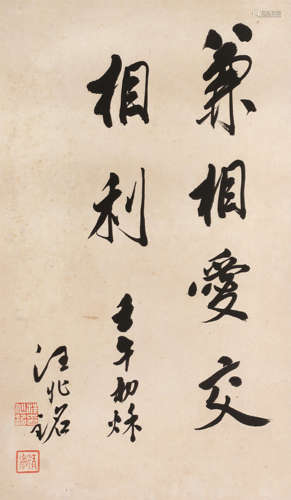 兼相愛交
相利
壬午初秌
汪兆銘